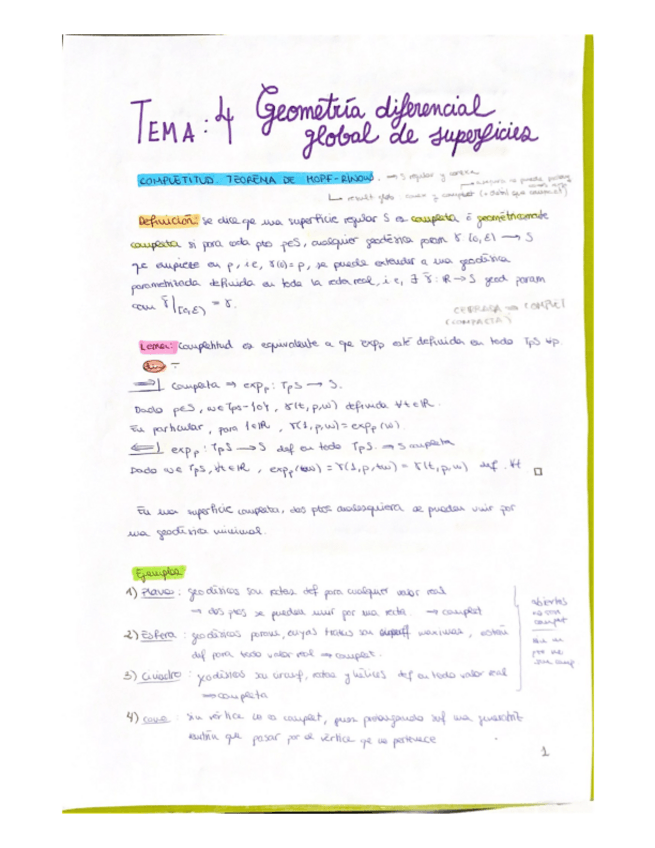 TEMA: 4 Geometría diferencial
global de superficies
COMPLETITUD. TEOREMA DE HOPF-RINOW. → S regular y conexa
Definición: se dice qe una superficie regular S es completa ó geométricamente
completa si para cada pto p∈S, cualquier geodésica param γ: [0,ε) → S
qe empiece en p, i.e, γ(0)=p, se puede extender a una geodésica
parametrizada definida en toda la recta real, i.e, ∃ γ̃: ℝ → S geod param
con γ̃|[0,ε) = γ.
CERRADA ⇒ COMPLET
(COMPACTA)
Lema: Completitud es equivalente a qe expₚ esté definida en todo TpS ∀p.
Dem :-
⇒| Completa ⇒ expₚ: TpS → S.
Dado p∈S, w∈TpS-{0}, γ(t,p,w) definida ∀t∈ℝ.
En particular, para 1∈ℝ, γ(1,p,w)=expₚ(w).
⇐| expₚ: TpS → S def en todo TpS ⇒ S completa
Dado w∈TpS, ∀t∈ℝ, expₚ(tw) = γ(1,p,tw) = γ(t,p,w) def. ∀t □
En una superficie completa, dos ptos cualesquiera se pueden unir por
una geodésica minimal.
Ejemplos:
1) Plano: geodésicas son rectas def para cualquier valor real
→ dos ptos se pueden unir por una recta. → complet
2) Esfera: geodésicas param, cuyas trazas son máximas, están
def para todo valor real ⇒ complet.
3) Cilindro: geodésicas son circunf, rectas y hélices def en todo valor real
⇒ completa
abiertos
no son
complet
4) Cono: sin vértice no es complet, pues prolongando suf una generatriz
tendría que pasar por el vértice qe no pertenece
1